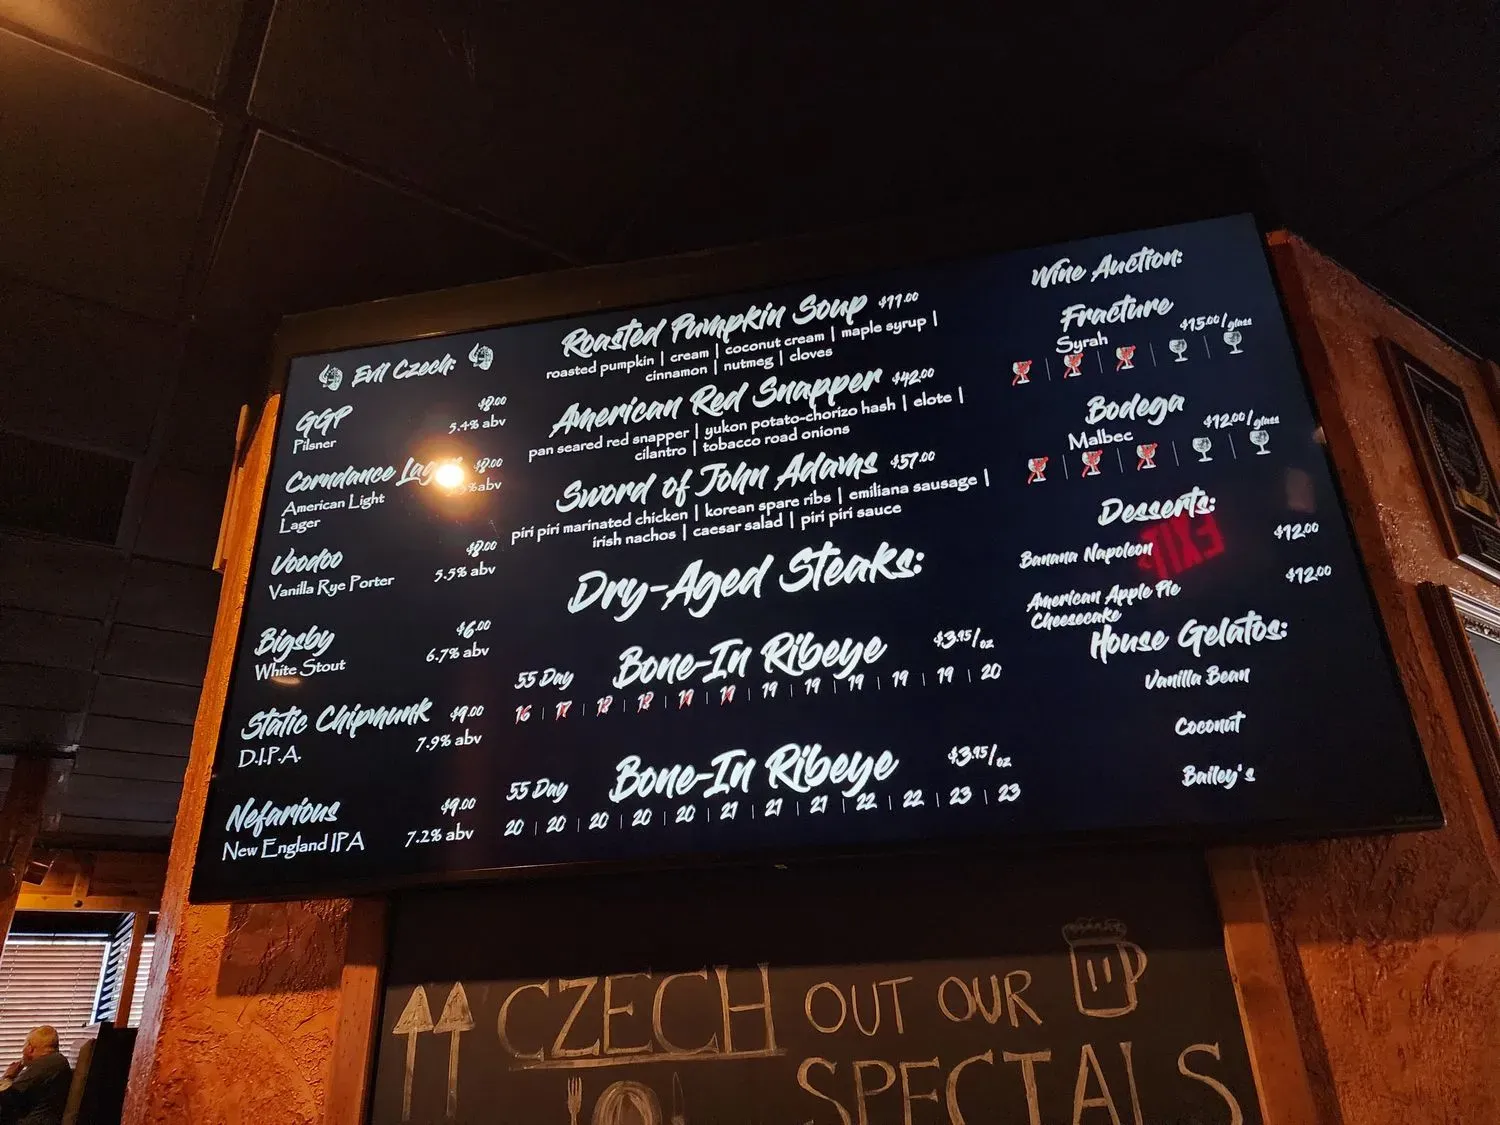 Evil Czech:
GGP $8.00
Pilsner 5.4% abv
Corndance $8.00
American Light abv
Lager
Voodoo $8.00
Vanilla Rye Porter 5.5% abv
Bigsby $6.00
White Stout 6.7% abv
Static Chipmunk $9.00
D.I.P.A. 7.9% abv
Nefarious $9.00
New England IPA 7.2% abv
Roasted Pumpkin Soup $11.00
roasted pumpkin | cream | coconut cream | maple syrup |
cinnamon | nutmeg | cloves
American Red Snapper $42.00
pan seared red snapper | yukon potato-chorizo hash | elote |
cilantro | tobacco road onions
Sword of John Adams $57.00
piri piri marinated chicken | korean spare ribs | emiliana sausage |
irish nachos | caesar salad | piri piri sauce
Dry-Aged Steaks:
55 Day Bone-In Ribeye $3.95/oz
16 | 17 | 18 | 18 | 19 | 19 | 19 | 19 | 19 | 20
55 Day Bone-In Ribeye $3.95/oz
20 | 20 | 20 | 20 | 20 | 21 | 21 | 21 | 22 | 22 | 23 | 23
Wine Auction:
Fracture
Syrah $15.00/glass
Bodega
Malbec $12.00/glass
Desserts:
EXIT
Banana Napoleon $12.00
American Apple Pie $12.00
Cheesecake
House Gelatos:
Vanilla Bean
Coconut
Bailey's
CZECH OUT OUR
SPECIALS